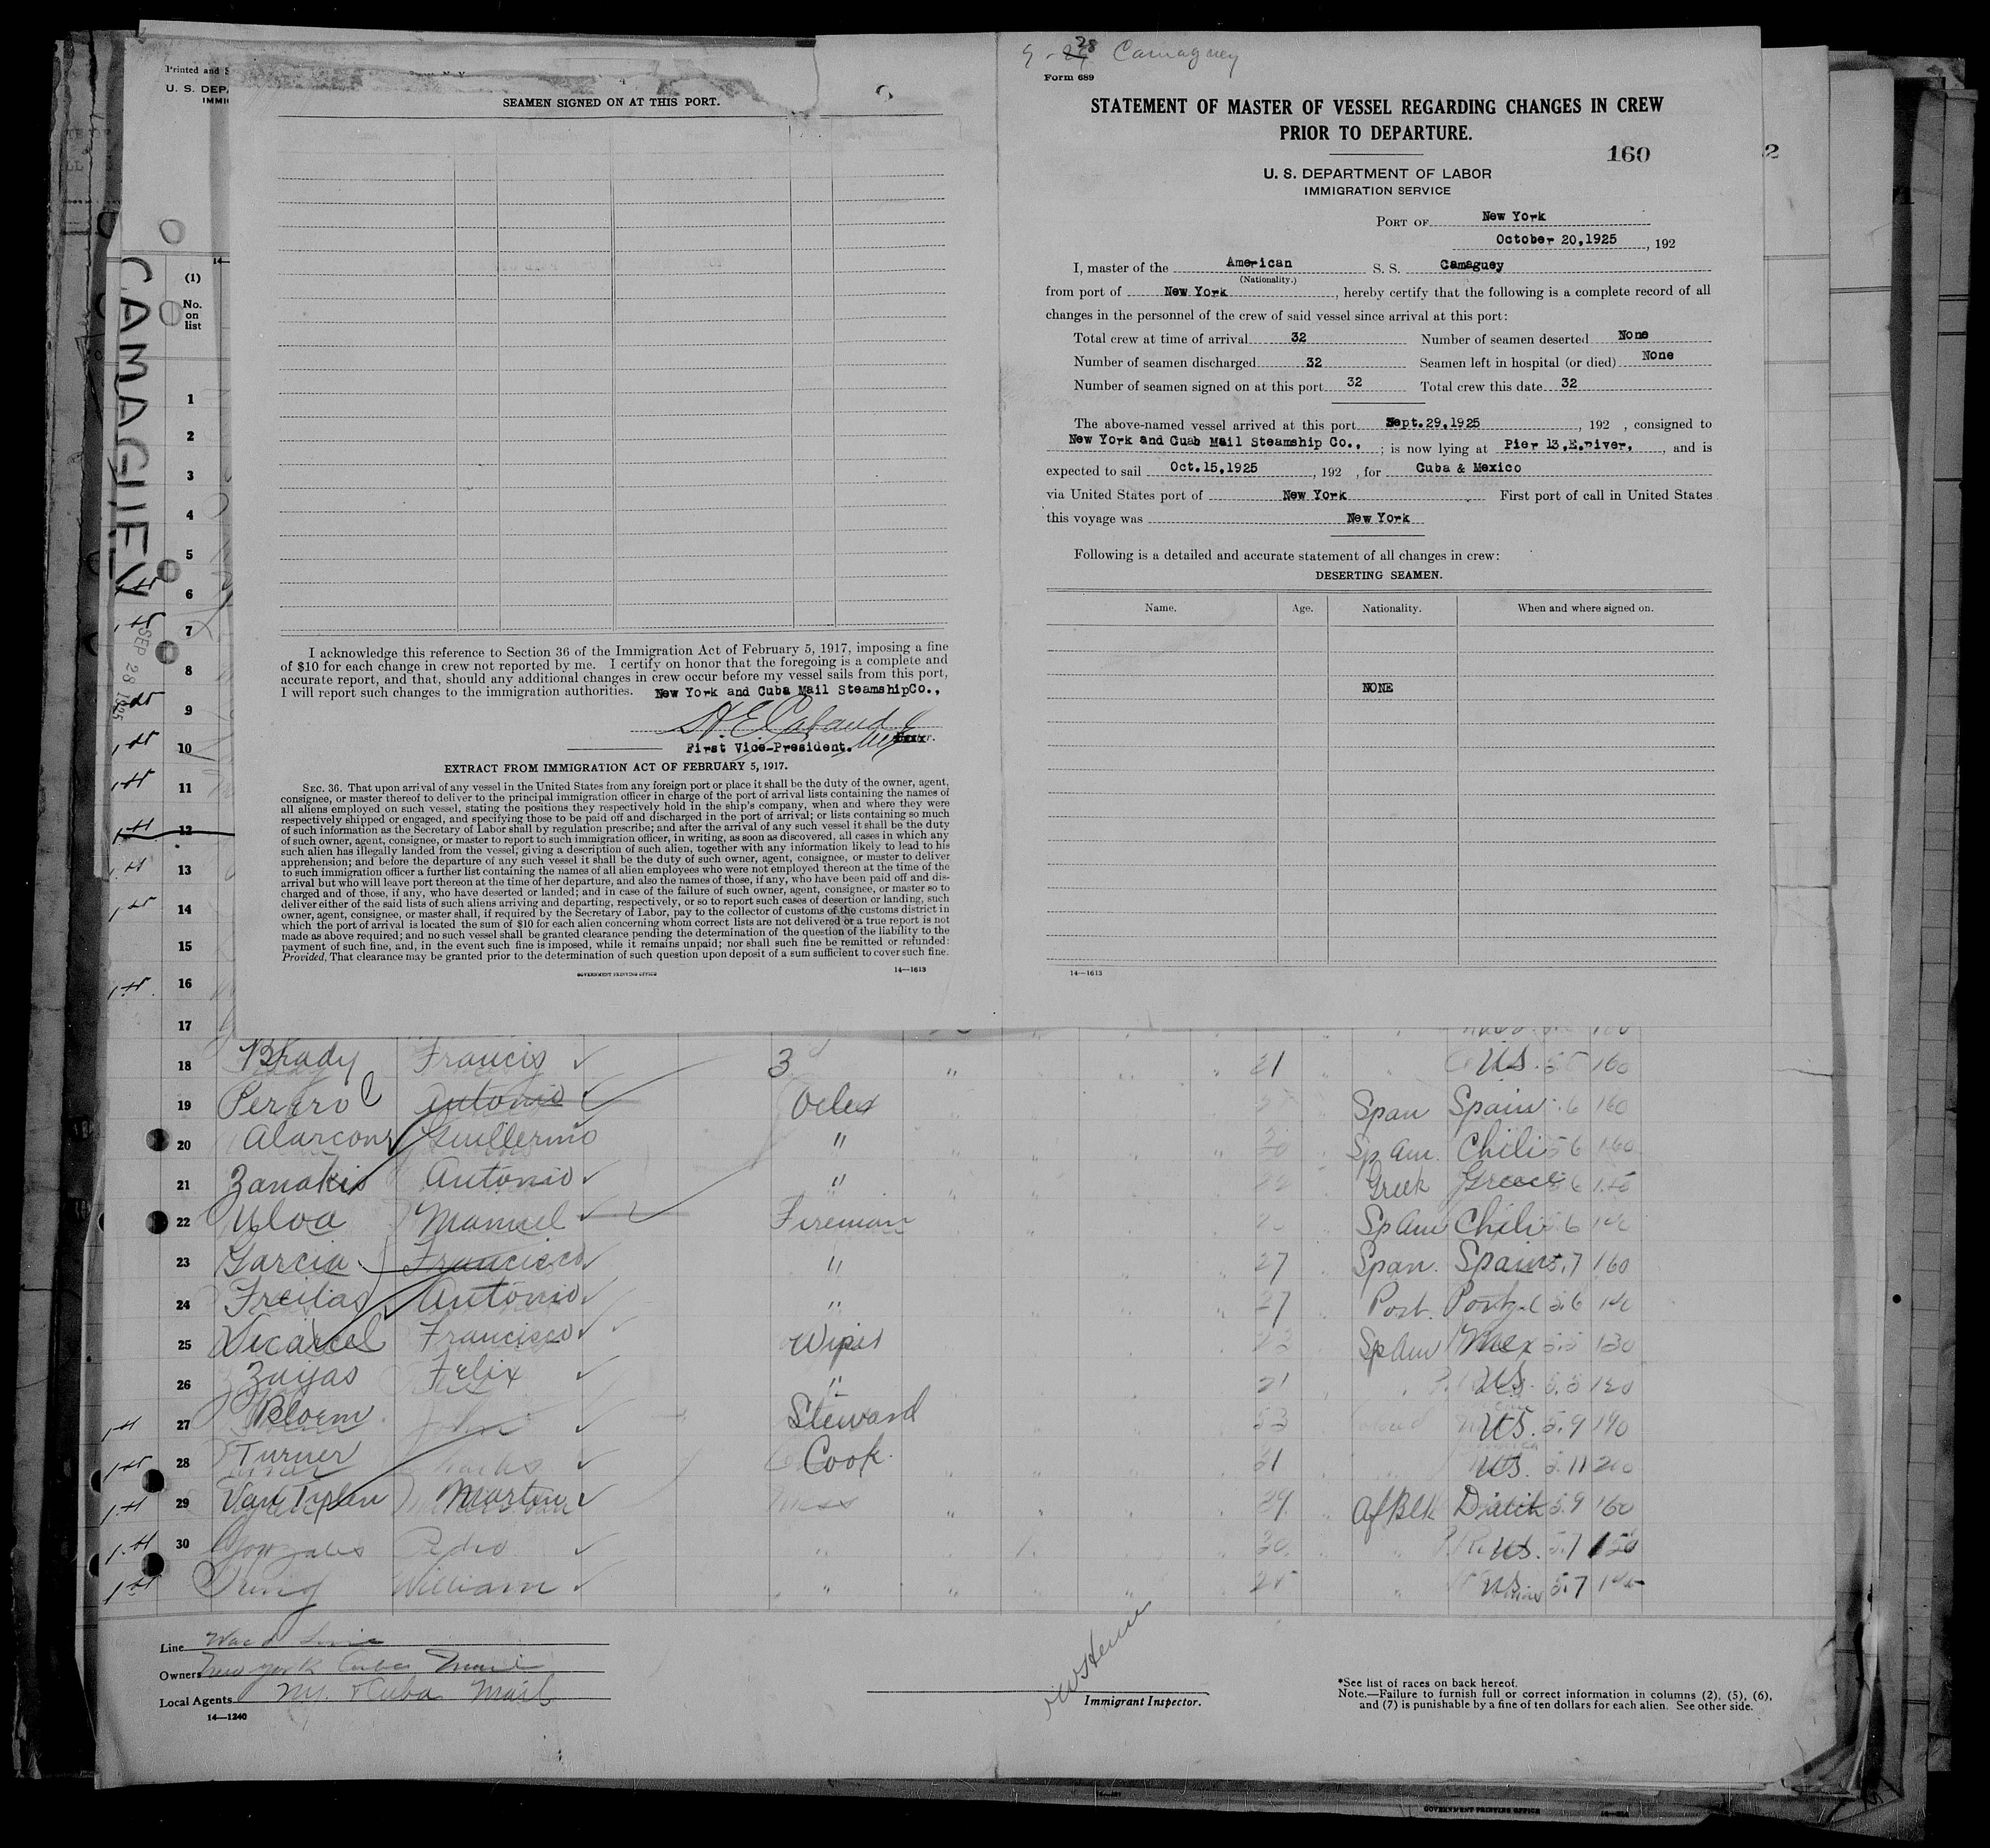 Printed and S
U. S. DEP
IMMI
SEAMEN SIGNED ON AT THIS PORT.
I acknowledge this reference to Section 36 of the Immigration Act of February 5, 1917, imposing a fine
of $10 for each change in crew not reported by me. I certify on honor that the foregoing is a complete and
accurate report, and that, should any additional changes in crew occur before my vessel sails from this port,
I will report such changes to the immigration authorities. New York and Cuba Mail SteamshipCo.,
First Vice-President.
EXTRACT FROM IMMIGRATION ACT OF FEBRUARY 5, 1917.
SEC. 36. That upon arrival of any vessel in the United States from any foreign port or place it shall be the duty of the owner, agent,
consignee, or master thereof to deliver to the principal immigration officer in charge of the port of arrival lists containing the names of
all aliens employed on such vessel, stating the positions they respectively hold in the ship's company, when and where they were
respectively shipped or engaged, and specifying those to be paid off and discharged in the port of arrival; or lists containing so much
of such information as the Secretary of Labor shall by regulation prescribe; and after the arrival of any such vessel it shall be the duty
of such owner, agent, consignee, or master to report to such immigration officer, in writing, as soon as discovered, all cases in which any
such alien has illegally landed from the vessel, giving a description of such alien, together with any information likely to lead to his
apprehension; and before the departure of any such vessel it shall be the duty of such owner, agent, consignee, or master to deliver
to such immigration officer a further list containing the names of all alien employees who were not employed thereon at the time of the
arrival but who will leave port thereon at the time of her departure, and also the names of those, if any, who have been paid off and dis-
charged and of those, if any, who have deserted or landed; and in case of the failure of such owner, agent, consignee, or master so to
deliver either of the said lists of such aliens arriving and departing, respectively, or so to report such cases of desertion or landing, such
owner, agent, consignee, or master shall, if required by the Secretary of Labor, pay to the collector of customs of the customs district in
which the port of arrival is located the sum of $10 for each alien concerning whom correct lists are not delivered or a true report is not
made as above required; and no such vessel shall be granted clearance pending the determination of the question of the liability to the
payment of such fine, and, in the event such fine is imposed, while it remains unpaid; nor shall such fine be remitted or refunded:
Provided, That clearance may be granted prior to the determination of such question upon deposit of a sum sufficient to cover such fine.
GOVERNMENT PRINTING OFFICE 14—1613
9 - 28 Camaguey
Form 689
STATEMENT OF MASTER OF VESSEL REGARDING CHANGES IN CREW
PRIOR TO DEPARTURE.
160
U. S. DEPARTMENT OF LABOR
IMMIGRATION SERVICE
PORT OF New York
October 20,1925, 192
I, master of the American S. S. Camaguey
(Nationality.)
from port of New York, hereby certify that the following is a complete record of all
changes in the personnel of the crew of said vessel since arrival at this port:
Total crew at time of arrival 32 Number of seamen deserted None
Number of seamen discharged 32 Seamen left in hospital (or died) None
Number of seamen signed on at this port 32 Total crew this date 32
The above-named vessel arrived at this port Sept.29,1925, 192 , consigned to
New York and Cuab Mail Steamship Co., ; is now lying at Pier 13,E.river, , and is
expected to sail Oct.15,1925, 192 , for Cuba & Mexico
via United States port of New York. First port of call in United States
this voyage was New York
Following is a detailed and accurate statement of all changes in crew:
DESERTING SEAMEN.
Name. Age. Nationality. When and where signed on.
NONE
14—1613
2
CAMAGUEY
SEP 28 1925
(1)
No.
on
list
1
2
3
4
5
6
7
8
9
10
11
12
13
14
15
16
17
18 Brady Francis 3 21 US. 160
19 Antonio Oiler Span Spain 6 160
20 Alarcon Guillermo " 30 Sp Am. Chili 5 6 160
21 Zanakis Antonio " Greek Greece
22 Uloa Manuel Fireman Sp Am Chili
23 Garcia Francisco " 27 Span. Spain 5.7 160
24 Freitas Antonio " 27 Port. 5.6
25 Francisco Wiper Sp Am Mex 5.5 130
26 Zuijas Felix " 21 US. 5.5 120
27 Bloem John Steward 53 US. 5.9 190
28 Turner Charles Cook 31 US. 5.11 200
29 Martin Mess 39 Af Blk Dutch 5.9 160
30 Gonzales Pedro " 30 US. 5.7 150
William " 25 US. 5.7
Line Ward Line
Owners New York Cuba Mail
Local Agents NY. & Cuba Mail
14—1240
Immigrant Inspector.
*See list of races on back hereof.
Note.—Failure to furnish full or correct information in columns (2), (5), (6),
and (7) is punishable by a fine of ten dollars for each alien. See other side.
GOVERNMENT PRINTING OFFICE